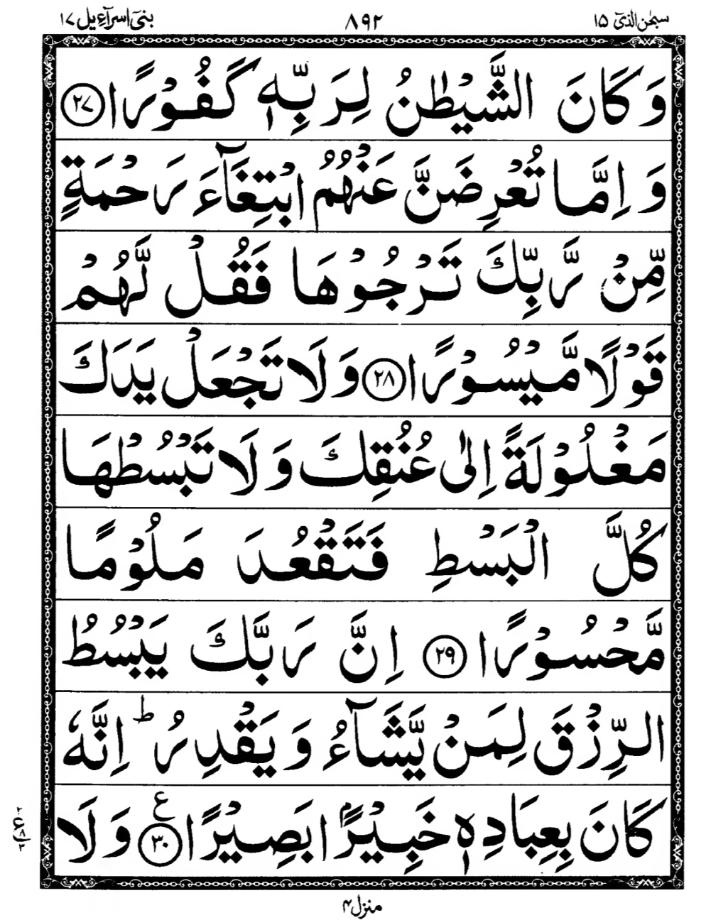 سبحٰن الذیٓ ١٥ ٨٩٢ بنیٓ اسرآءیل ١٧
وَ كَانَ الشَّيْطٰنُ لِرَبِّهٖ كَفُوْرًا ﴿٢٧﴾
وَ اِمَّا تُعْرِضَنَّ عَنْهُمُ ابْتِغَآءَ رَحْمَةٍ
مِّنْ رَّبِّكَ تَرْجُوْهَا فَقُلْ لَّهُمْ
قَوْلًا مَّيْسُوْرًا ﴿٢٨﴾ وَ لَا تَجْعَلْ يَدَكَ
مَغْلُوْلَةً اِلٰى عُنُقِكَ وَ لَا تَبْسُطْهَا
كُلَّ الْبَسْطِ فَتَقْعُدَ مَلُوْمًا
مَّحْسُوْرًا ﴿٢٩﴾ اِنَّ رَبَّكَ يَبْسُطُ
الرِّزْقَ لِمَنْ يَّشَآءُ وَ يَقْدِرُ ؕ اِنَّهٗ
كَانَ بِعِبَادِهٖ خَبِيْرًۢا بَصِيْرًا ﴿٣٠﴾ ع وَ لَا
منزل ۴